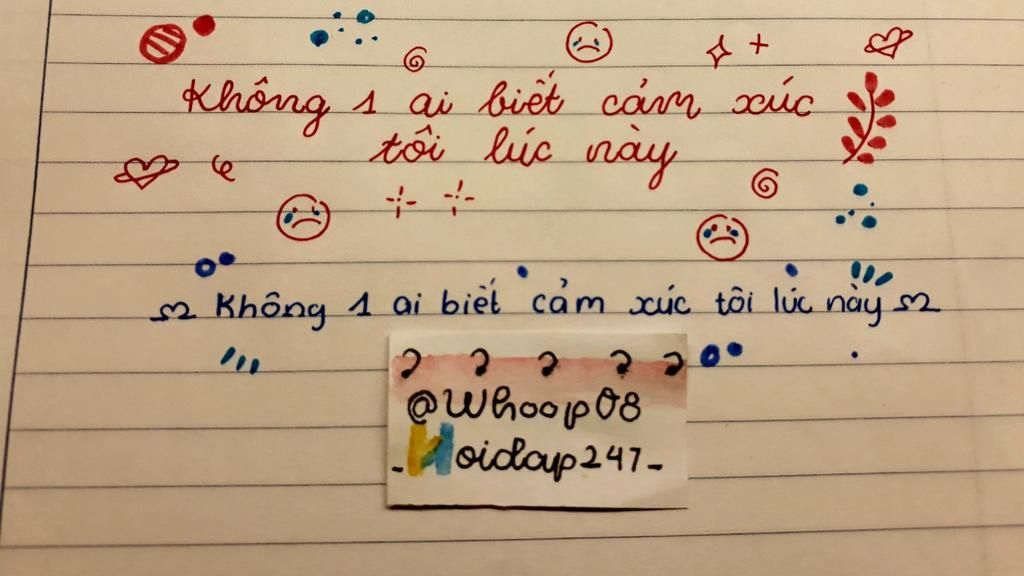 Không 1 ai biết cảm xúc
tôi lúc này
Không 1 ai biết cảm xúc tôi lúc này
@Whoop08
-Hoidap247-